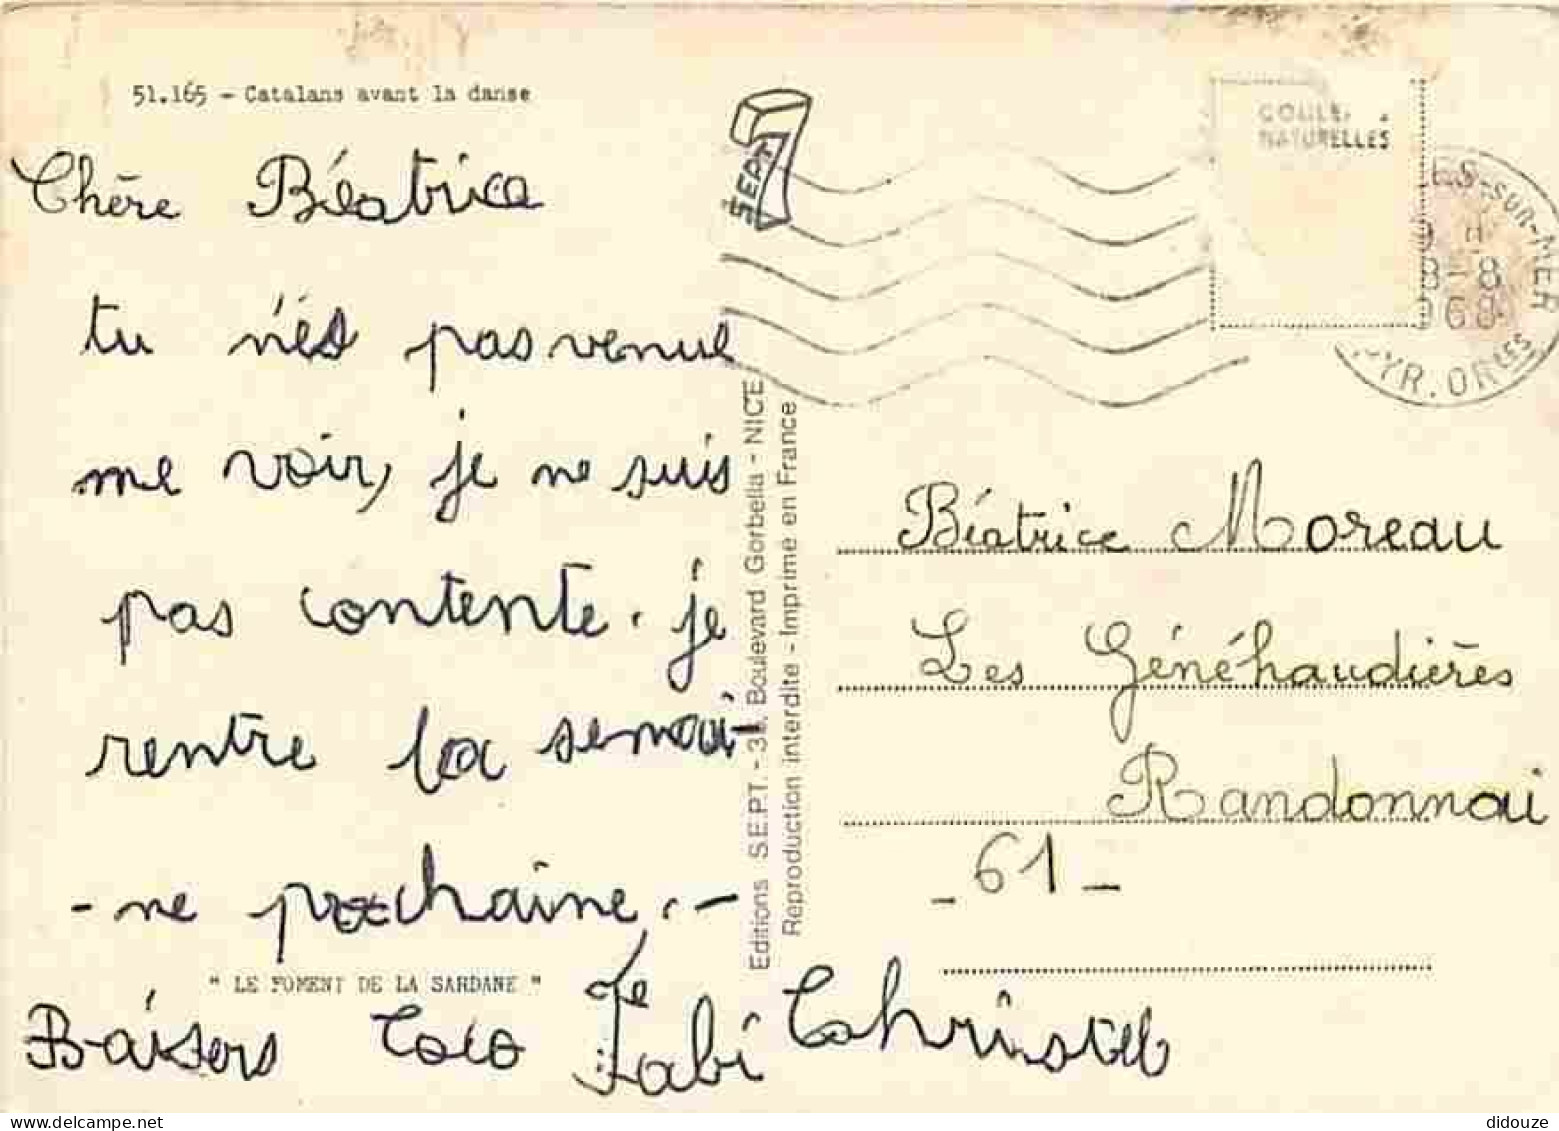 51.165 - Catalans avant la danse
Chère Béatrice
tu n'es pas venue
me voir, je ne suis
pas contente. je
rentre la semai-
-ne prochaine.-
" LE FOMENT DE LA SARDANE "
Baisers Coco Je Fabi Christel
7
SEPT
Editions S.E.P.T. - 33, Boulevard Gorbella - NICE
Reproduction interdite - Imprimé en France
NATURELLES
ES-SUR-MER
8
968
PYR. ORLES
Béatrice Moreau
Les Généhaudières
Randonnai
- 61 -
didouze